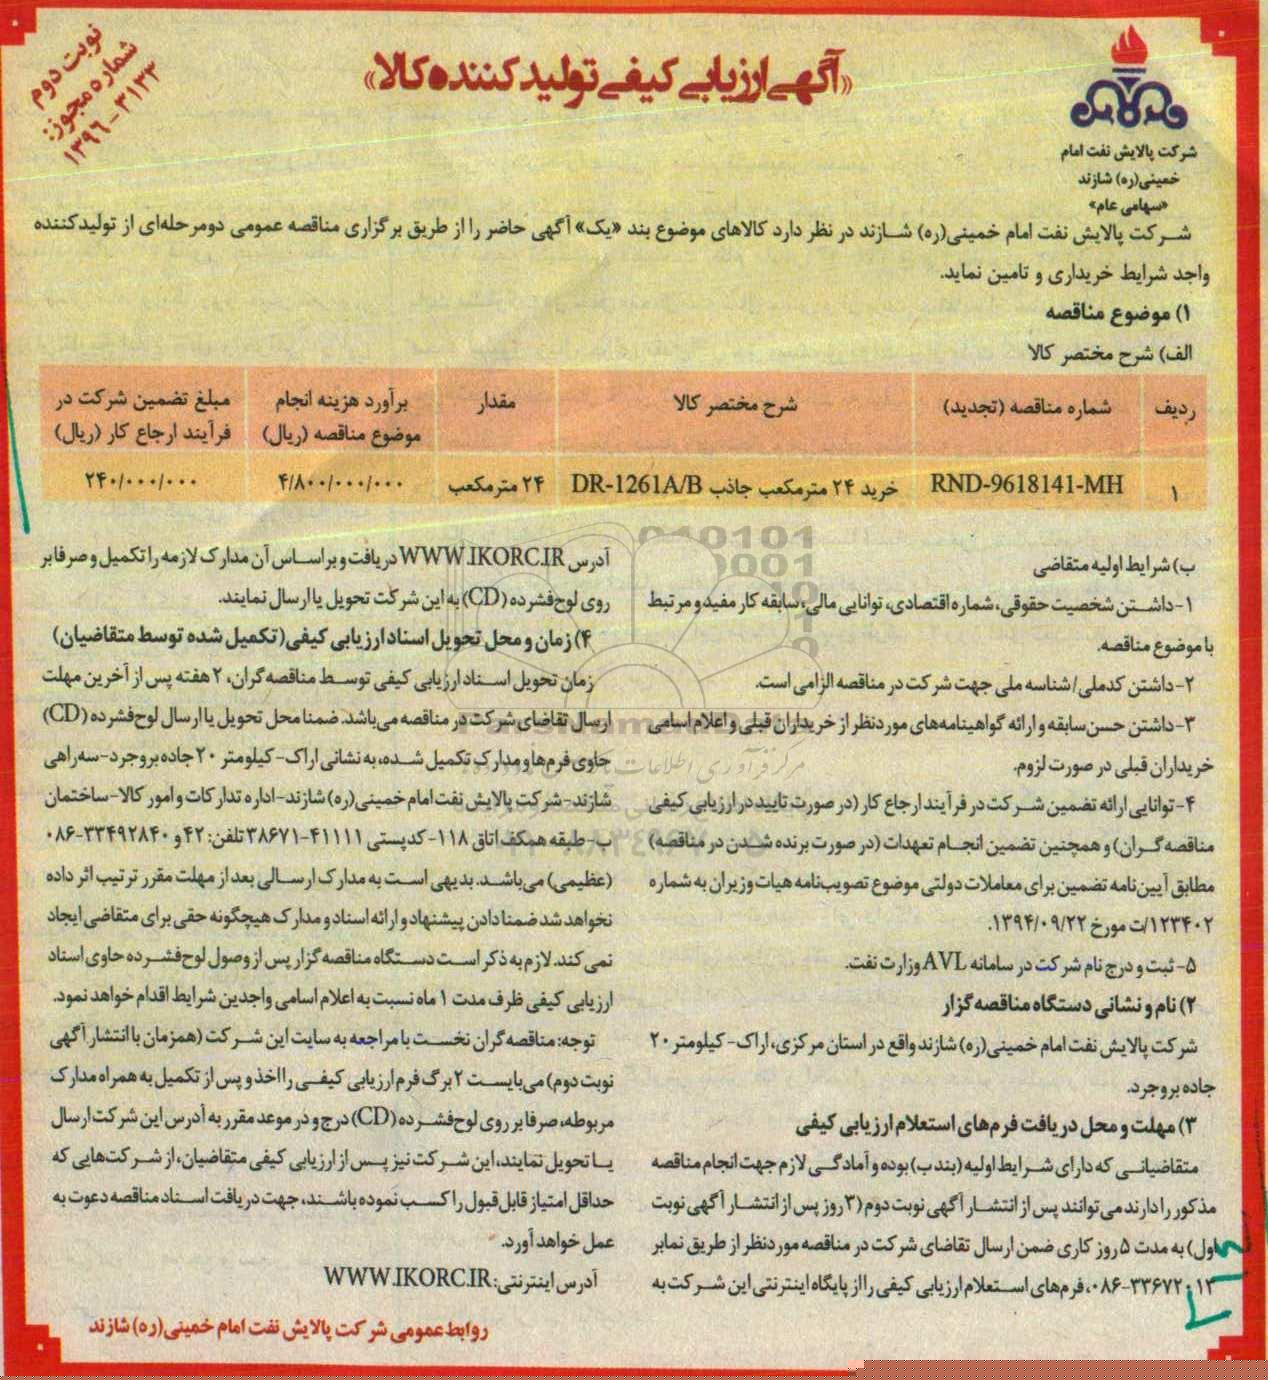 نوبت دوم
شماره مجوز:
۱۳۹۶-۳۱۳۳
«آگهی ارزیابی کیفی تولیدکننده کالا»
شرکت پالایش نفت امام
خمینی(ره) شازند
«سهامی عام»
شرکت پالایش نفت امام خمینی(ره) شازند در نظر دارد کالاهای موضوع بند «یک» آگهی حاضر را از طریق برگزاری مناقصه عمومی دومرحله‌ای از تولیدکننده
واجد شرایط خریداری و تامین نماید.
۱) موضوع مناقصه
الف) شرح مختصر کالا
ردیف | شماره مناقصه (تجدید) | شرح مختصر کالا | مقدار | برآورد هزینه انجام موضوع مناقصه (ریال) | مبلغ تضمین شرکت در فرآیند ارجاع کار (ریال)
۱ | RND-9618141-MH | خرید ۲۴ مترمکعب جاذب DR-1261A/B | ۲۴ مترمکعب | ۴/۸۰۰/۰۰۰/۰۰۰ | ۲۴۰/۰۰۰/۰۰۰
ب) شرایط اولیه متقاضی
۱- داشتن شخصیت حقوقی، شماره اقتصادی، توانایی مالی، سابقه کار مفید و مرتبط
با موضوع مناقصه.
۲- داشتن کدملی/شناسه ملی جهت شرکت در مناقصه الزامی است.
۳- داشتن حسن سابقه و ارائه گواهینامه‌های موردنظر از خریداران قبلی و اعلام اسامی
خریداران قبلی در صورت لزوم.
۴- توانایی ارائه تضمین شرکت در فرآیند ارجاع کار (در صورت تایید در ارزیابی کیفی
مناقصه‌گران) و همچنین تضمین انجام تعهدات (در صورت برنده شدن در مناقصه)
مطابق آیین‌نامه تضمین برای معاملات دولتی موضوع تصویب‌نامه هیات وزیران به شماره
۱۲۳۴۰۲/ت مورخ ۱۳۹۴/۰۹/۲۲.
۵- ثبت و درج نام شرکت در سامانه AVL وزارت نفت.
۲) نام و نشانی دستگاه مناقصه‌گزار
شرکت پالایش نفت امام خمینی(ره) شازند واقع در استان مرکزی، اراک- کیلومتر ۲۰
جاده بروجرد.
۳) مهلت و محل دریافت فرم‌های استعلام ارزیابی کیفی
متقاضیانی که دارای شرایط اولیه (بند ب) بوده و آمادگی لازم جهت انجام مناقصه
مذکور را دارند می‌توانند پس از انتشار آگهی نوبت دوم (۳ روز پس از انتشار آگهی نوبت
اول) به مدت ۵ روز کاری ضمن ارسال تقاضای شرکت در مناقصه موردنظر از طریق نمابر
۰۸۶-۳۳۶۷۲۰۱۳، فرم‌های استعلام ارزیابی کیفی را از پایگاه اینترنتی این شرکت به
آدرس WWW.IKORC.IR دریافت و براساس آن مدارک لازمه را تکمیل و صرفا بر
روی لوح فشرده (CD) به این شرکت تحویل یا ارسال نمایند.
۴) زمان و محل تحویل اسناد ارزیابی کیفی (تکمیل شده توسط متقاضیان)
زمان تحویل اسناد ارزیابی کیفی توسط مناقصه‌گران، ۲ هفته پس از آخرین مهلت
ارسال تقاضای شرکت در مناقصه می‌باشد. ضمنا محل تحویل یا ارسال لوح فشرده (CD)
حاوی فرم‌ها و مدارک تکمیل شده، به نشانی اراک- کیلومتر ۲۰ جاده بروجرد-سه‌راهی
شازند-شرکت پالایش نفت امام خمینی(ره) شازند-اداره تدارکات و امور کالا-ساختمان
ب- طبقه همکف اتاق ۱۱۸- کدپستی ۴۱۱۱۱-۳۸۶۷۱ تلفن: ۴۲ و ۳۳۴۹۲۸۴۰-۰۸۶
(عظیمی) می‌باشد. بدیهی است به مدارک ارسالی بعد از مهلت مقرر ترتیب اثر داده
نخواهد شد ضمنا دادن پیشنهاد و ارائه اسناد و مدارک هیچگونه حقی برای متقاضی ایجاد
نمی‌کند. لازم به ذکر است دستگاه مناقصه‌گزار پس از وصول لوح فشرده حاوی اسناد
ارزیابی کیفی ظرف مدت ۱ ماه نسبت به اعلام اسامی واجدین شرایط اقدام خواهد نمود.
توجه: مناقصه‌گران نخست با مراجعه به سایت این شرکت (همزمان با انتشار آگهی
نوبت دوم) می‌بایست ۲ برگ فرم ارزیابی کیفی را اخذ و پس از تکمیل به همراه مدارک
مربوطه، صرفا بر روی لوح فشرده (CD) درج و در موعد مقرر به آدرس این شرکت ارسال
یا تحویل نمایند، این شرکت نیز پس از ارزیابی کیفی متقاضیان، از شرکت‌هایی که
حداقل امتیاز قابل قبول را کسب نموده باشند، جهت دریافت اسناد مناقصه دعوت به
عمل خواهد آورد.
آدرس اینترنتی: WWW.IKORC.IR
روابط عمومی شرکت پالایش نفت امام خمینی(ره) شازند